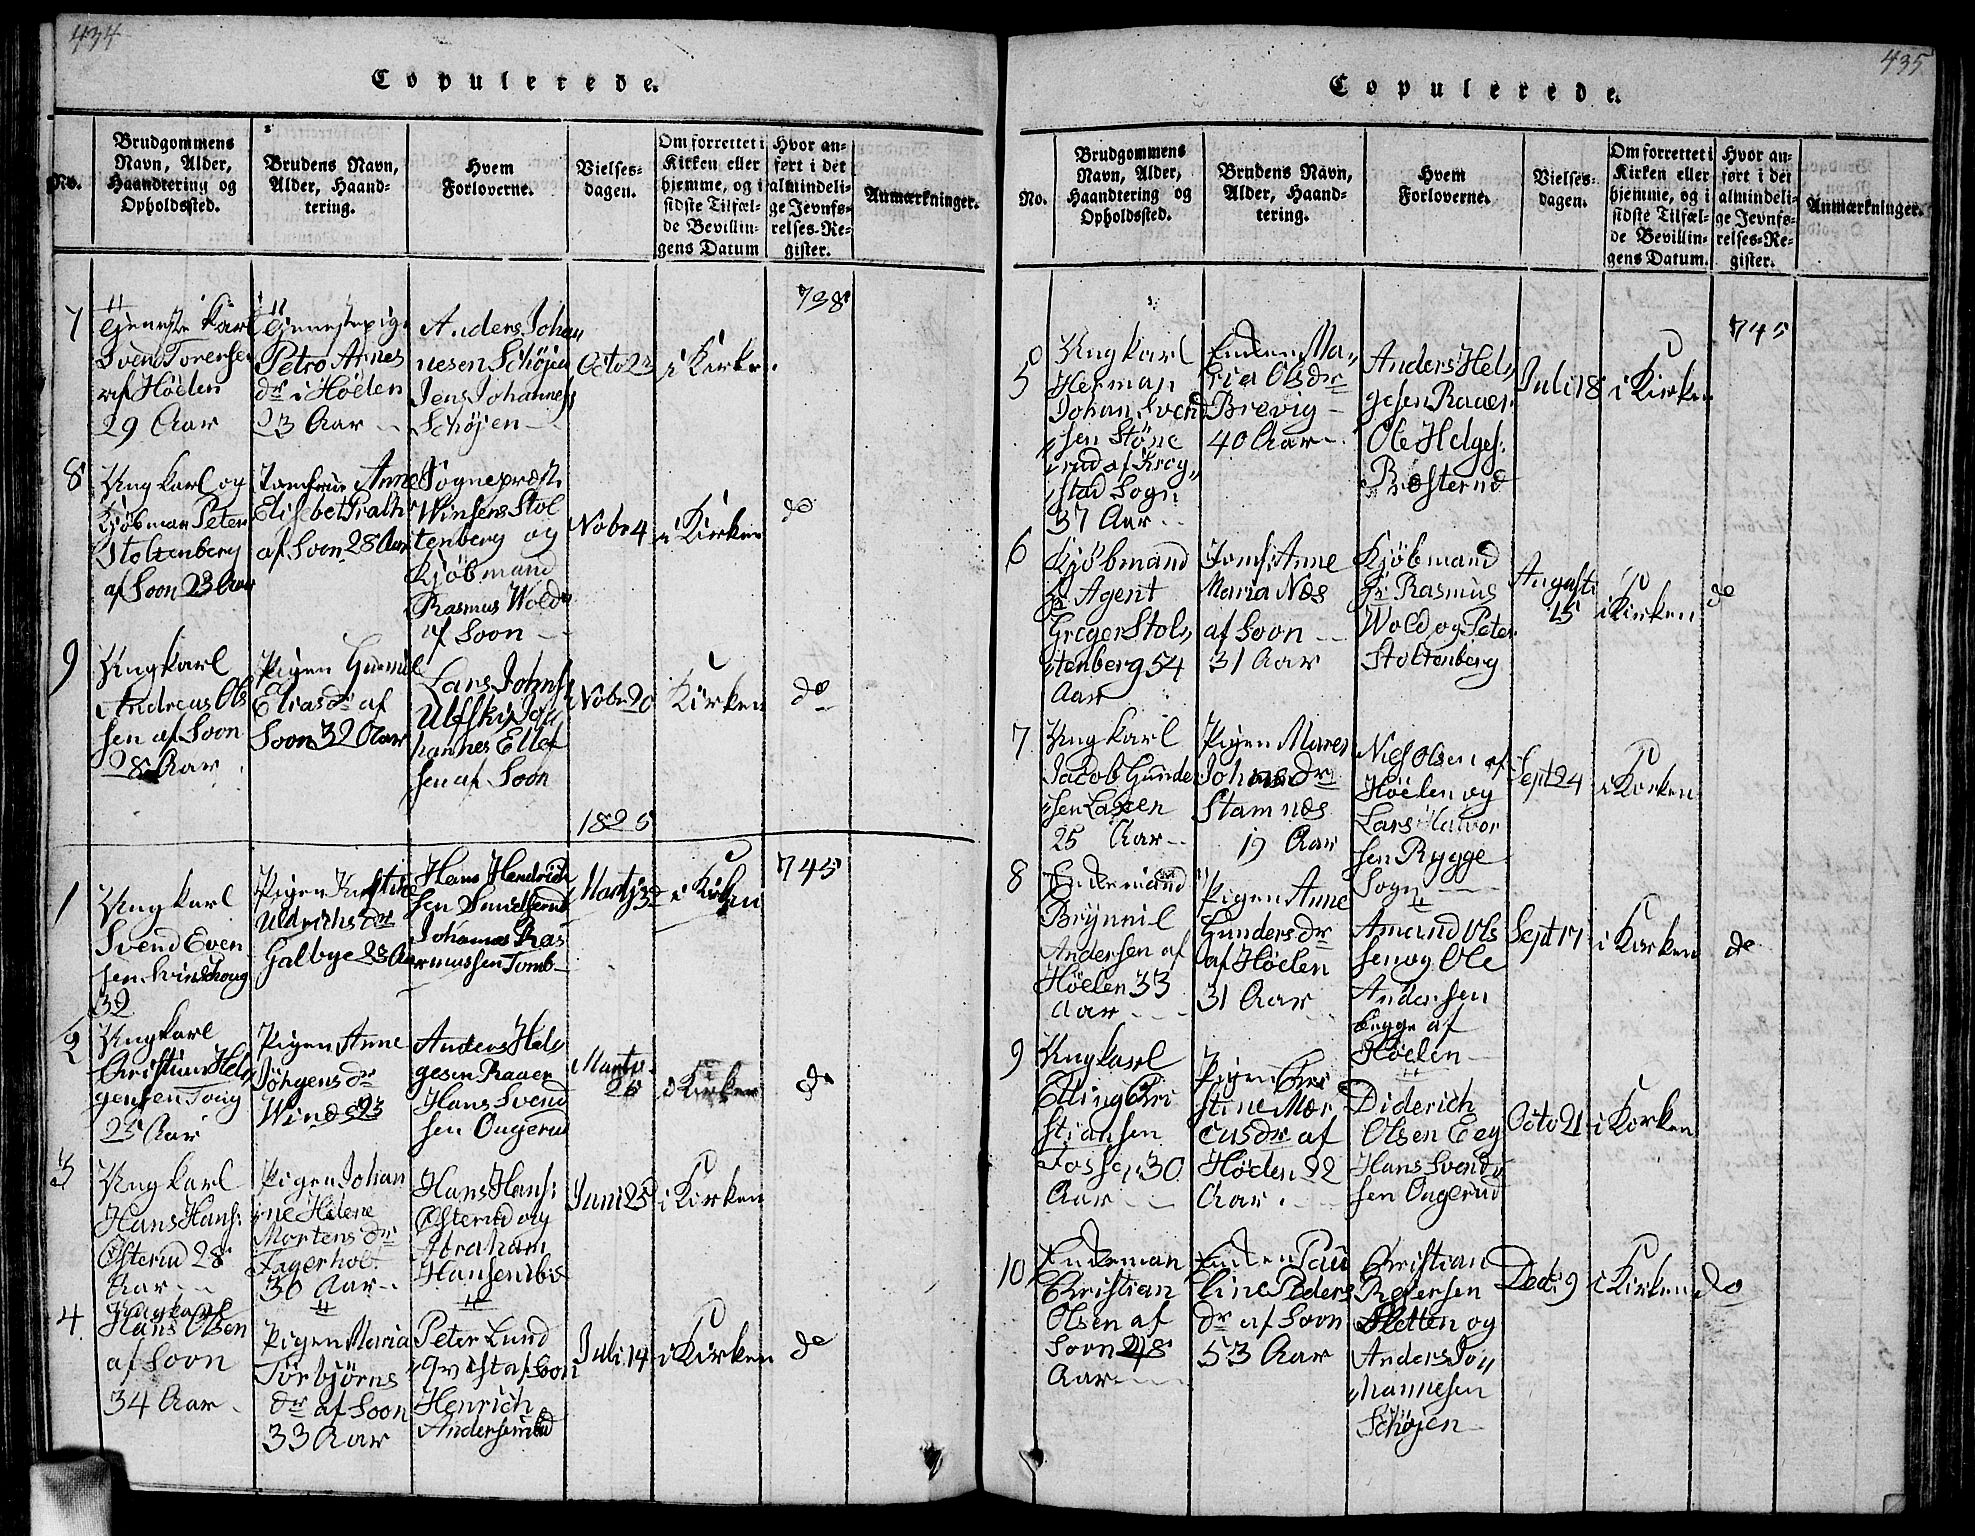 434
Copulerede.
No.
Brudgommens
Navn, Alder,
Haandtering og
Opholdssted.
Brudens Navn,
Alder, Haand-
tering.
Hvem
Forloverne.
Vielses-
dagen.
Om forrettet i
Kirken eller
hjemme, og i
sidste Tilfæl-
de Bevillin-
gens Datum
Hvor an-
ført i det
almindeli-
ge Jevnfø-
relses-Re-
gister.
Anmærkninger.
7
Tjeneste Karl
Svend Torensen
af Höelen
29 Aar
Tjenestepige
Petro Arnes
dr i Höelen
23 Aar
Anders Johan
nesen Schöjen
Jens Johannes
Schöjen
Octo 23
i Kirken
738
8
Ungkarl og
Kjöbman Peter
Stoltenberg
af Soon 23 Aar
Jomfrue Anne
Elisebet
af Soon 28 Aar
Sognepræst
Winsens Stol
tenberg og
Kjöbmand
Rasmus Wold
af Soon
Nobr 4
i Kirken
do
9
Ungkarl
Andreas Ols
sen af Soon
28 Aar
Pigen Gunnil
Eliasdr af
Soon 32 Aar
Lars Johns
Ulfski Jo
hannes Ellef
sen af Soon
Nobr 20
Kirken
do
1825
1
Ungkarl
Svend Even
sen
32
Pigen Kirstine
Uldrichsdr
Galbye 23 Aar
Hans Hendrich
sen
Johannes Ras
mussen Tomb
Martj 32
i Kirken
745
2
Ungkarl
Christian Hel
gensen
25 Aar
Pigen Anne
Jörgensdr
Winds 23
Anders Hel
gesen Raaer
Hans Svend
sen Ongerud
Martj
26
i Kirken
do
3
Ungkarl
Hans Hans:
Österud 28
Aar
Pigen Johan
ne Helene
Mortensdr
Fagerholt
30 Aar
Hans Hans:
Österud og
Abraham
Hansen ibid
Juni 25
i Kirken
4.
Ungkarl
Hans Olsen
af Soon
34 Aar
Pigen Maria
Törbjörns
dr af Soon
33 Aar
Peter Lund
qvist af Soon
Henrich
Andersen ibid
Juli 14
i Kirken
do
435
Copulerede.
No.
Brudgommens
Navn, Alder,
Haandtering og
Opholdssted.
Brudens Navn,
Alder, Haand-
tering.
Hvem
Forloverne.
Vielses-
dagen.
Om forrettet i
Kirken eller
hjemme, og i
sidste Tilfæl-
de Bevillin-
gens Datum.
Hvor an-
ført i det
almindeli-
ge Jevnfø-
relses-Re-
gister.
Anmærkninger.
5
Ungkarl
Herman
Johan Svend
sen Stöne
rud af Krog
stad Sogn
37 Aar
Enken Ma
ria Olsdr
Brevig
40 Aar
Anders Hel
gesen Raaer
Ole Helges:
Præsterud
Juli 18
i Kirken
745
6
Kjöbmand
Hr Agent
Greger Stol
tenberg 54
Aar
Jomf: Anne
Maria Næs
af Soon
31 Aar
Kjöbmand
Hr Rasmus
Wold og Peter
Stoltenberg
August
15
i Kirken
do
7
Ungkarl
Jacob Gunder
sen Laxen
25 Aar
Pigen Maren
Johansdr
Stamnæs
19 Aar
Niels Olsen af
Höelen og
Lars Halvor
sen Rygge
Sogn
Sept 24
i Kirken
8
Enkemand
Brynnil
Andersen af
Höelen 33
Aar
Pigen Anne
Gundersdr
af Höelen
31 Aar
Amund Ols
sen og Ole
Andersen
begge af
Höelen
Sept 17
i Kirken
do
9
Ungkarl
Elling Chri
stiansen
Fosse 30
Aar
Pigen Chri
stine Mar
cusdr af
Höelen 22
Aar.
Diderich
Olsen Eeg
Hans Svend
sen Ongerud
Octo 21
i Kirken
10
Enkeman
Christian
Olsen af
Soon 28
Aar
Enken Pau
line Peders
dr af Soon
53 Aar
Christian
Pedersen
Sletten og
Anders Jo
hannesen
Schöjen
Dec: 9
i Kirken
do